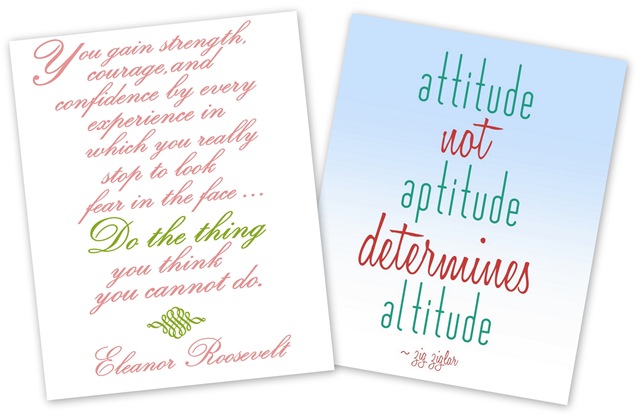 You gain strength,
courage, and
confidence by every
experience in
which you really
stop to look
fear in the face ...
Do the thing
you think
you cannot do.
Eleanor Roosevelt
attitude
not
aptitude
determines
altitude
~ zig ziglar